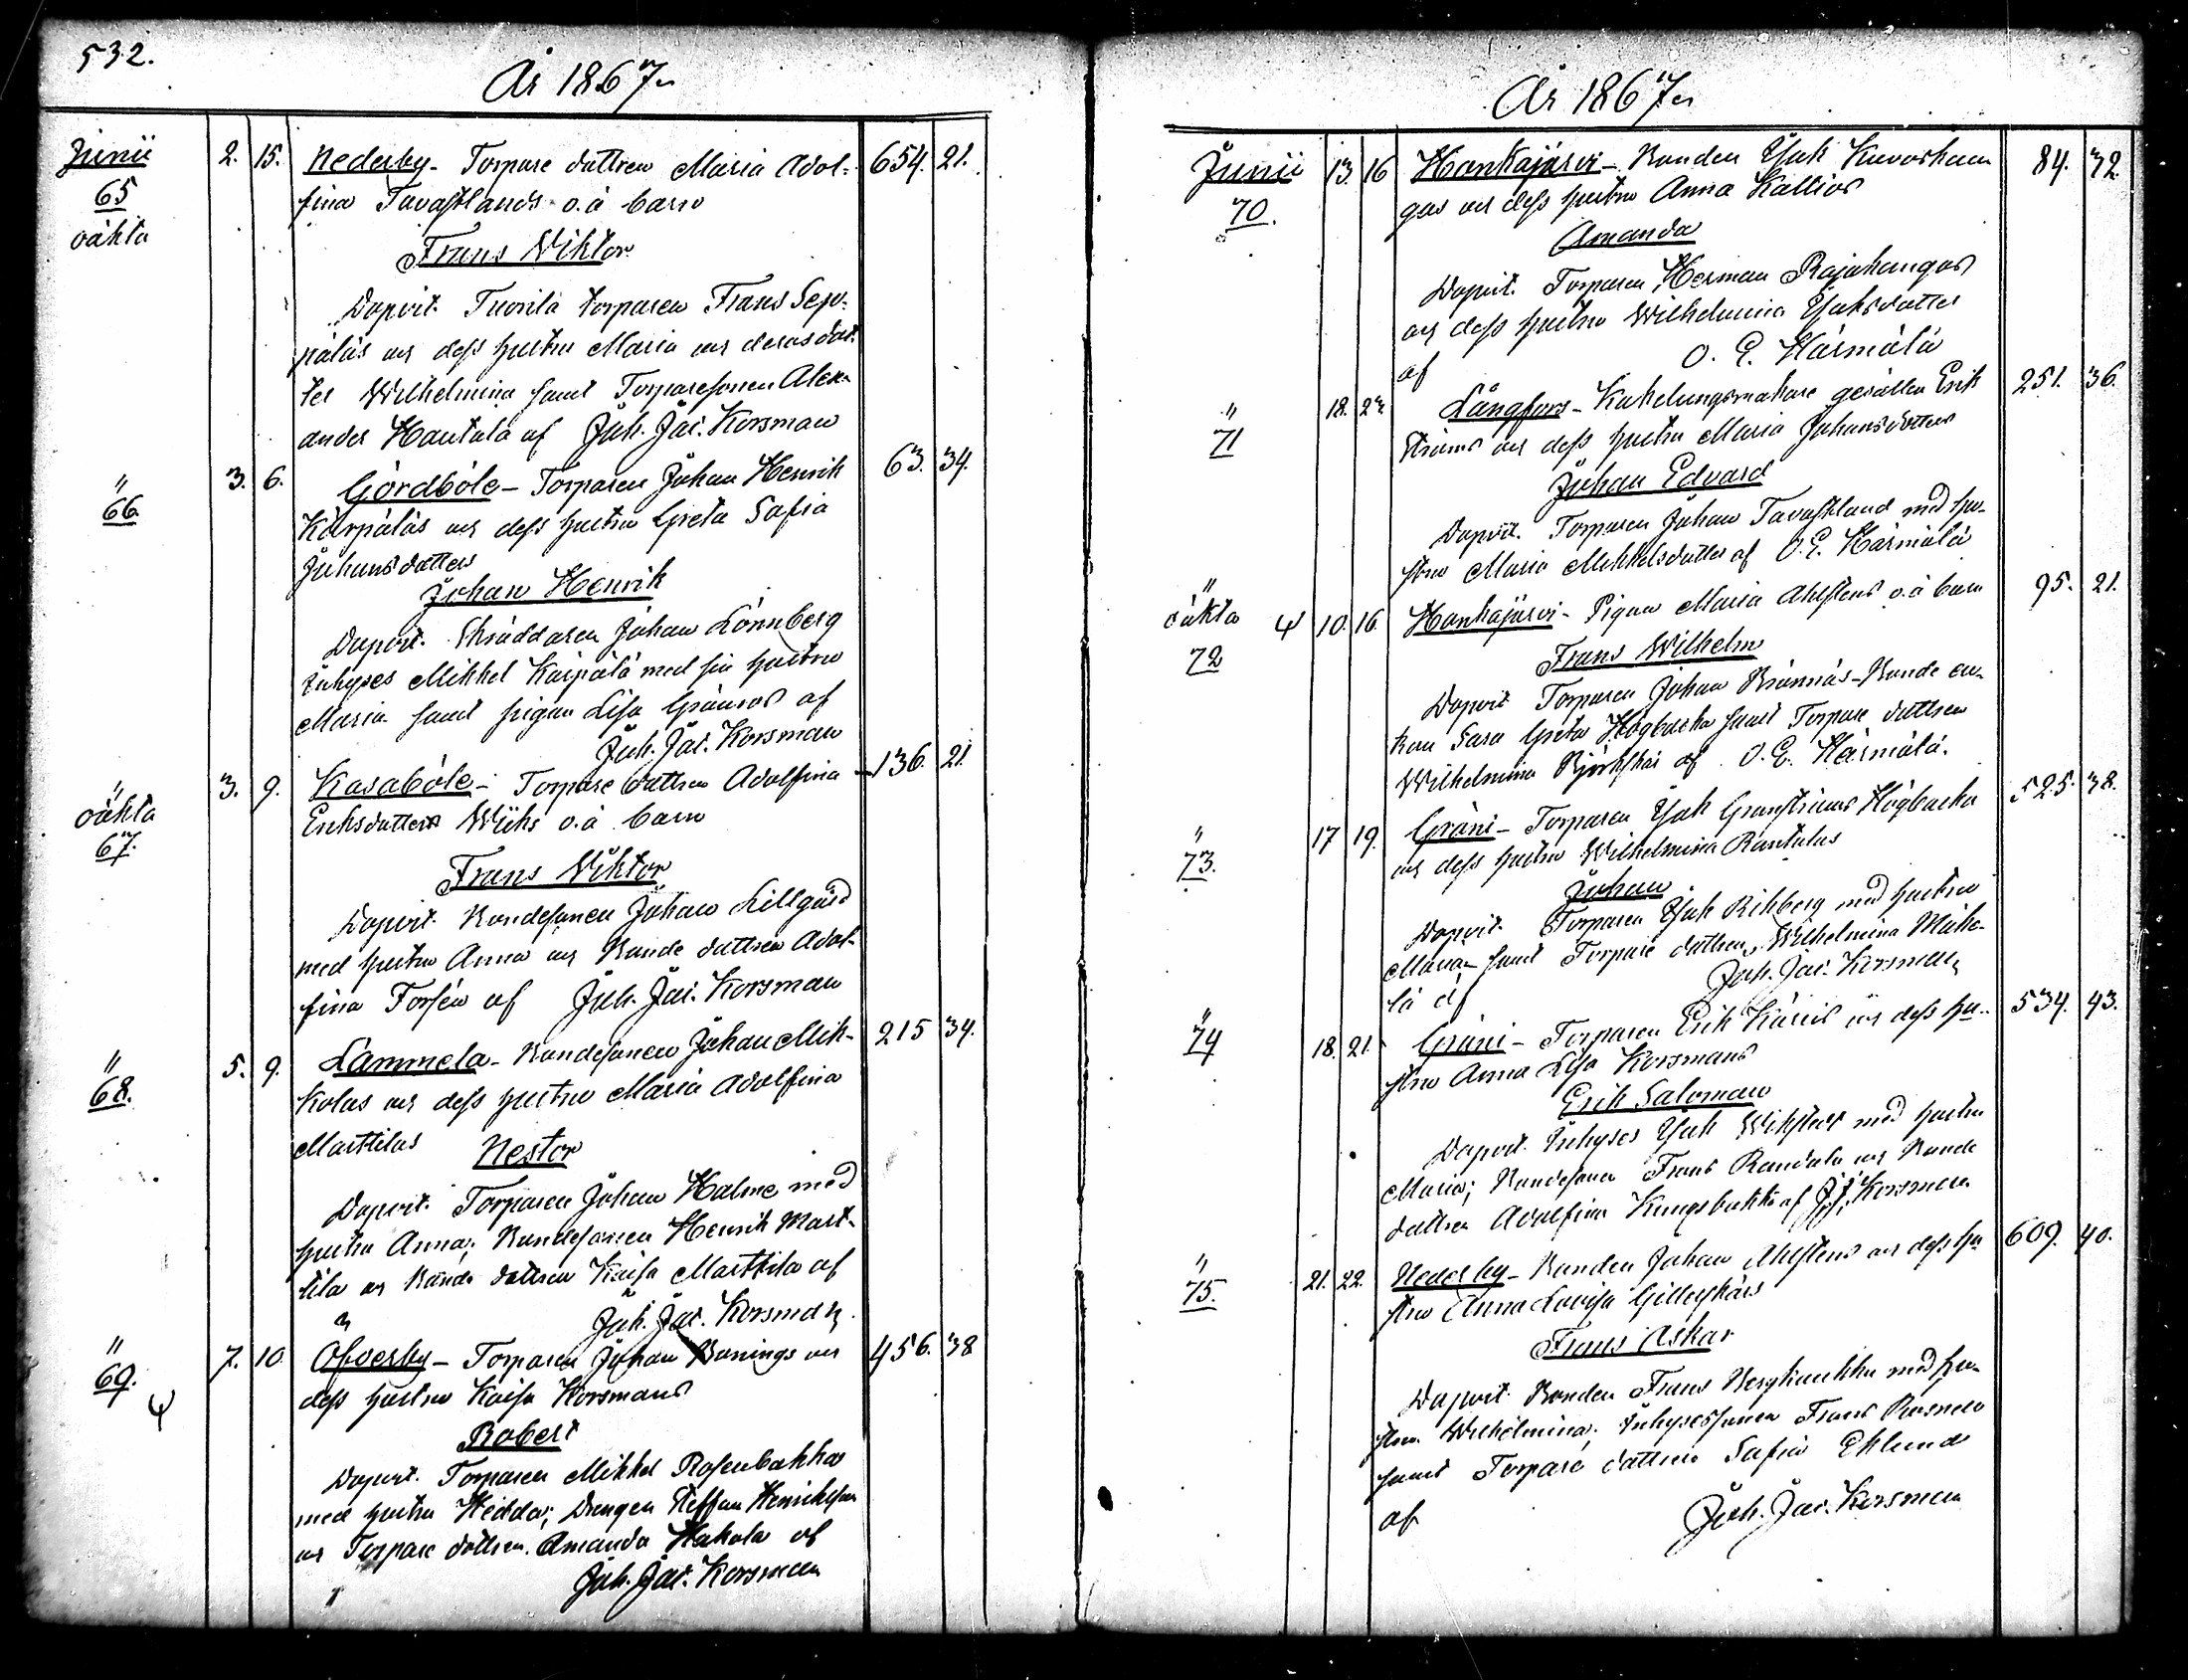 532.
År 1867.
Junii 2. 15. Nederby - Torpare dottren Maria Adol- 654. 21.
65 fina Tavastlands o.ä barn
oäkta
Frans Viktor
Dopvit. Tuorila torparen Frans Sep-
päläs och dess hustru Maria och deras dot-
ter Wilhelmina samt Torparesonen Alex-
ander Hautala af Joh. Jac. Korsman
" 3. 6. Gördböle - Torparen Johan Henrik 63. 34.
66. Kärpäläs och dess hustru Greta Sofia
Johansdotters
Johan Henrik
Dopvit. Skräddaren Johan Lönnberg
Inhyses Mikkel Kärpälä med sin hustru
Maria samt pigan Lisa Gränros af
Joh. Jac. Korsman
" 3. 9. Kasaböle - Torpare dottren Adolfina 136. 21.
oäkta Eriksdotters Wiiks o.ä barn
67.
Frans Viktor
Dopvit. Bondesonen Johan Lillgård
med hustru Anna och Bonde dottren Adol-
fina Forsén af Joh. Jac. Korsman
" 5. 9. Lammela - Bondesonen Johan Mik- 215 34.
68. kolas och dess hustru Maria Adolfina
Marttilas Nestor
Dopvit. Torparen Johan Halme med
hustru Anna; Bondesonen Henrik Mart-
tila och Bonde dottren Kaisa Marttila af
Joh. Jac. Korsman
" 7. 10. Öfverby - Torparen Johan Bonings och 456. 38
69. dess hustru Kaisa Korsmans
Robert
Dopvit. Torparen Mikkel Rosenbakka
med hustru Hedda; Drengen Steffan Henriksson
och Torpare dottren Amanda Hakola af
Joh. Jac. Korsman
År 1867.
Junii 13. 16 Honkajärvi - Bonden Isak Kuvoskan- 84. 32.
70. gas och dess hustru Anna Kallios
Amanda
Dopvit. Torparen Herman Rajakangas
och dess hustru Wilhelmina Isaksdotter
af O. E. Härmälä
" 18. 22 Långfors - Kakelungsmakare gesällen Erik 251. 36.
71 Ströms och dess hustru Maria Johansdotters
Johan Edvard
Dopvit. Torparen Johan Tavastland med hu-
stru Maria Mikkelsdotter af O. E. Härmälä
" oäkta 10. 16. Honkajärvi - Pigan Maria Ahlstens o.ä barn 95. 21.
72
Frans Wilhelm
Dopvit. Torparen Johan Brännäs - Bonde en-
kan Sara Greta Högbacka samt Torpare dottren
Wilhelmina Björkskär af O. E. Härmälä.
" 17 19. Gräni - Torparen Isak Granströms Högbacka 525. 38.
73. och dess hustru Wilhelmina Rantalas
Johan
Dopvit. Torparen Isak Rihberg med hustru
Maria samt Torpare dottren Wilhelmina Mäke-
lä af Joh. Jac. Korsman
" 18. 21. Gräni - Torparen Erik Käcis och dess hu- 534. 43.
74 stru Anna Lisa Korsmans
Erik Saloman
Dopvit. Inhyses Isak Wikstedt med hustru
Maria; Bondesonen Frans Randala och Bonde
dottren Adolfina Kungsbakka af J. J. Korsman
" 21. 22. Nederby - Bonden Johan Ahlstens och dess hu 609. 40.
75. stru Anna Lovisa Gillerskärs
Frans Oskar
Dopvit. Bonden Frans Bergbackka med hu-
stru Wilhelmina; Inhysessonen Frans Rosnell
samt Torpare dottren Sofia Eklund
af Joh. Jac. Korsman